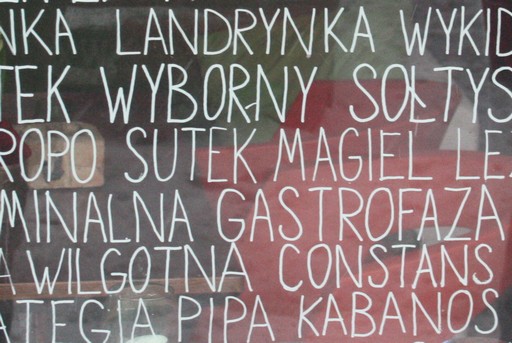 NKA LANDRYNKA WYKID
TEK WYBORNY SOŁTYS
ROPO SUTEK MAGIEL LEŻ
MINALNA GASTROFAZA
A WILGOTNA CONSTANS
ATEGIA PIPA KABANOS